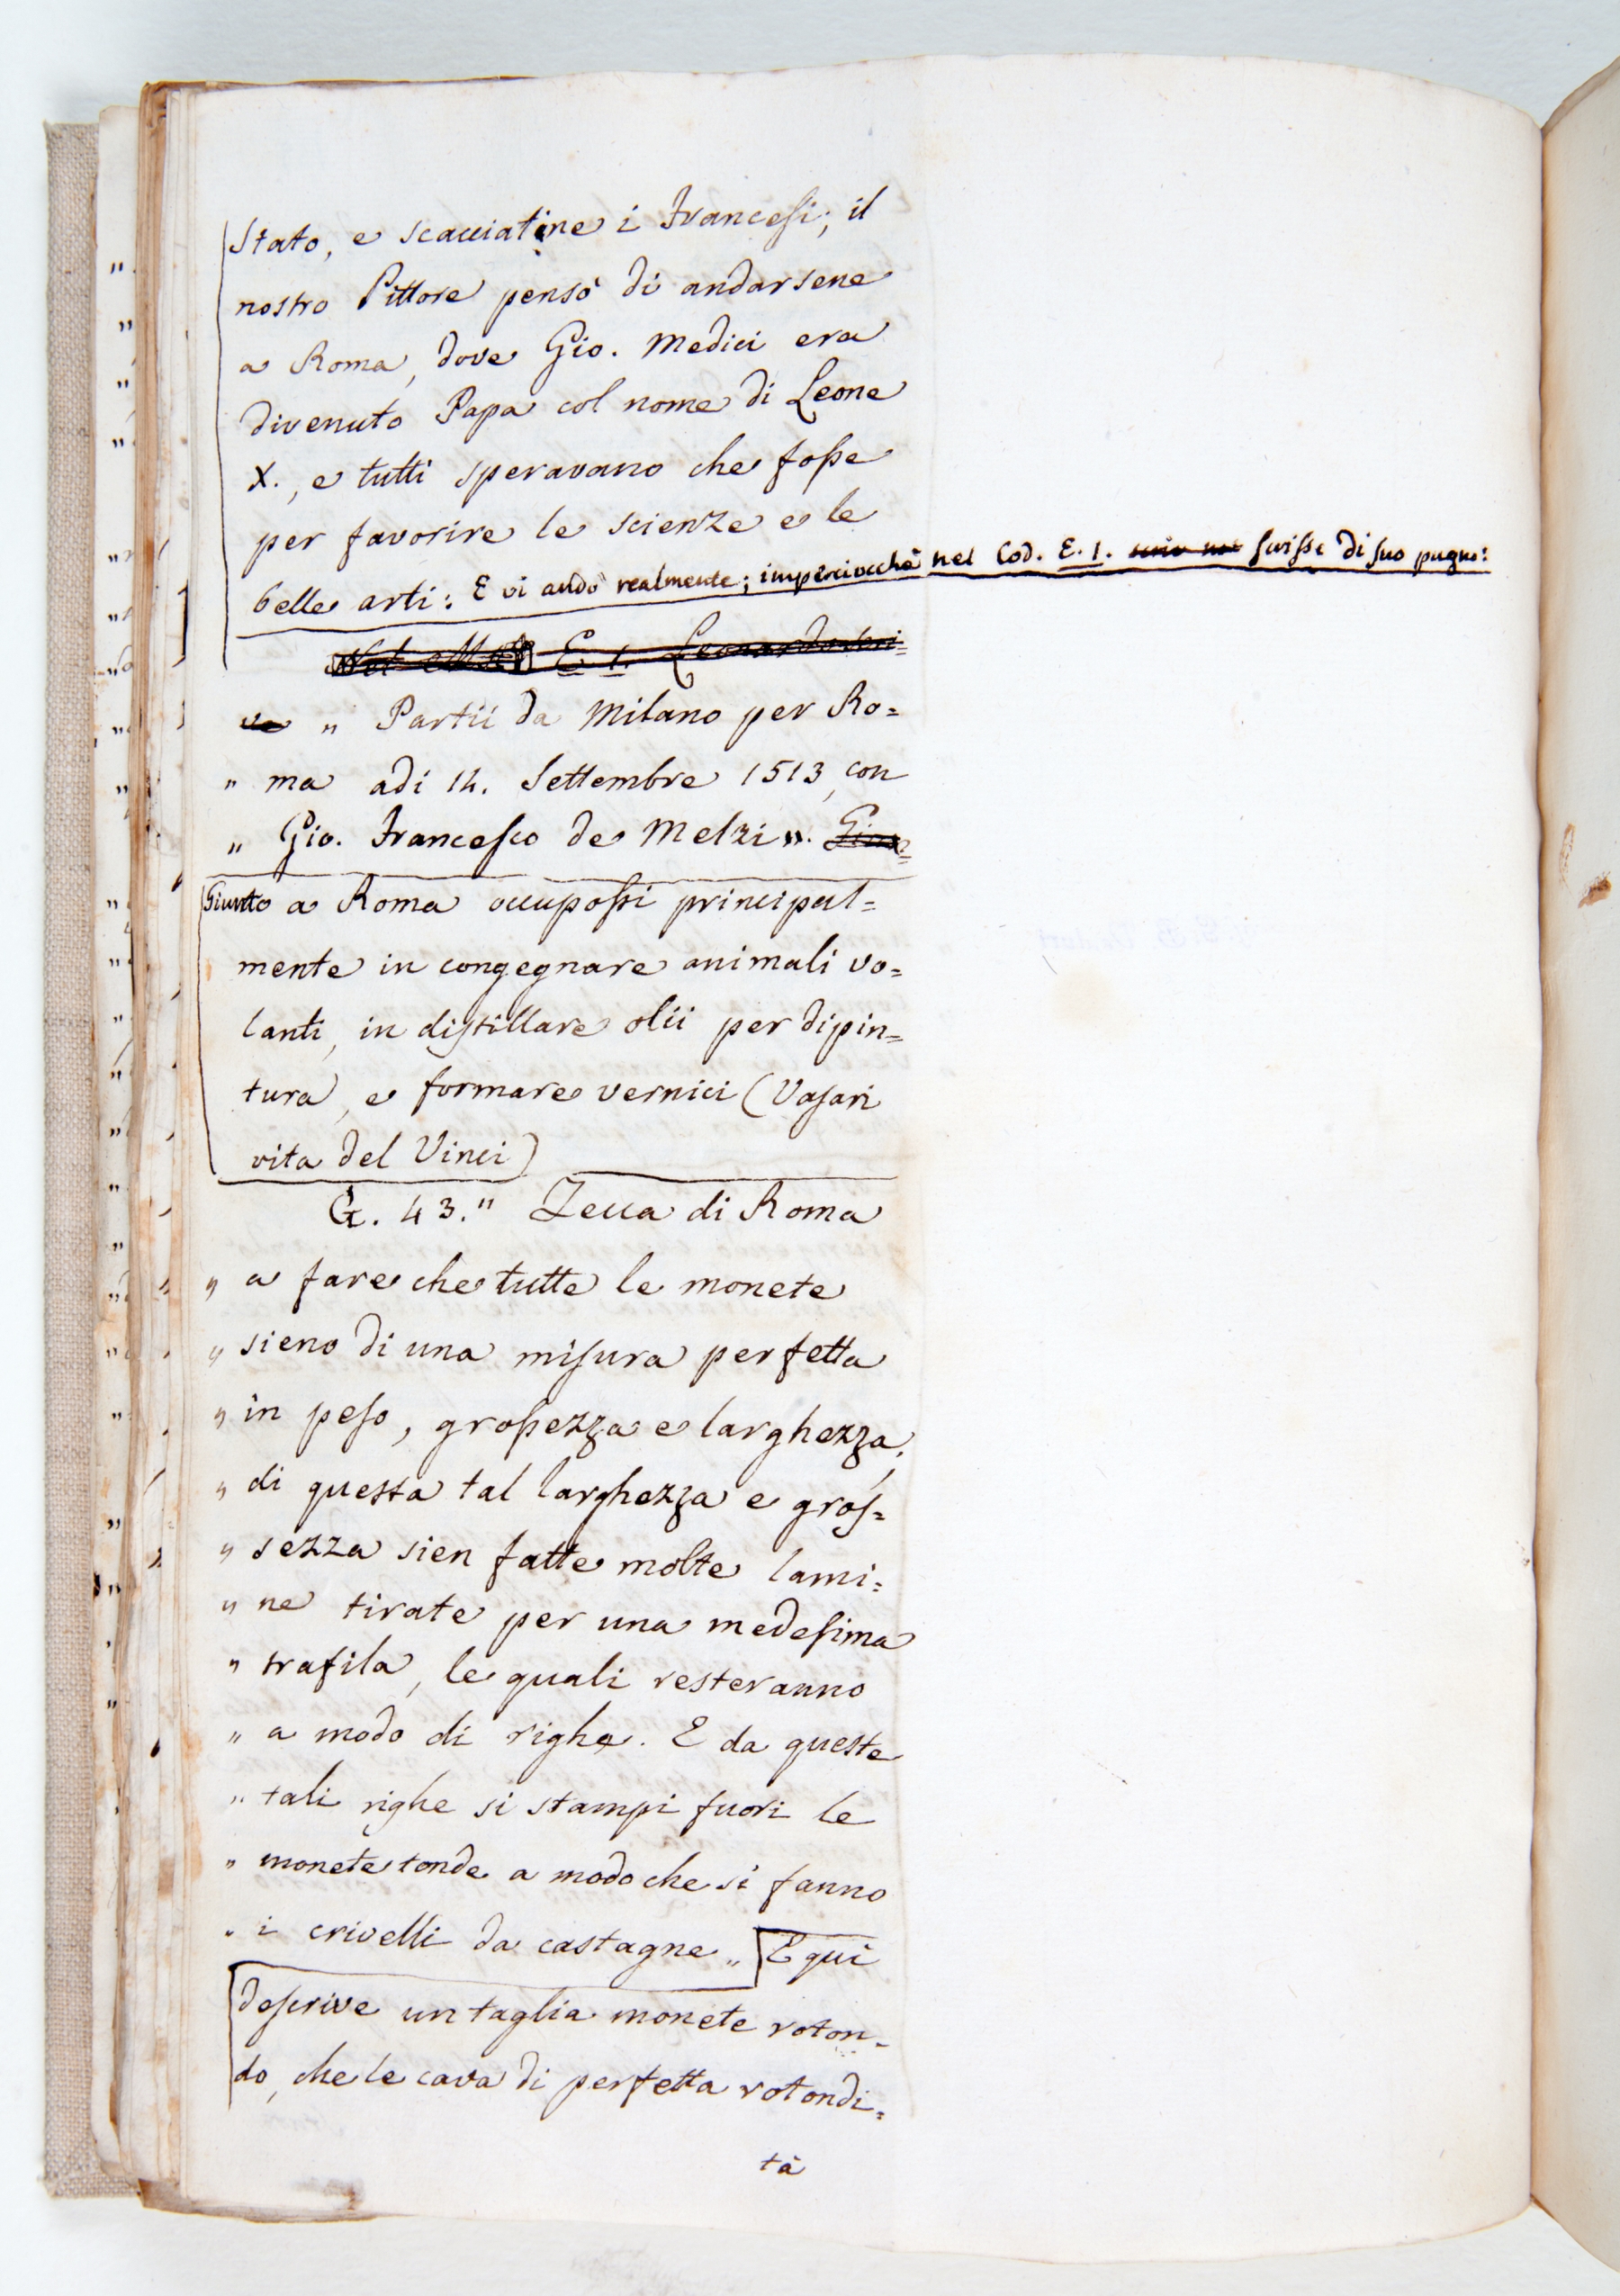 Stato, e scacciatine i Francesi; il
nostro Pittore pensò di andarsene
a Roma, dove Gio. Medici era
divenuto Papa col nome di Leone
X., e tutti speravano che fosse
per favorire le scienze e le
belle arti: E vi andò realmente; imperciocchè nel Cod. E. 1. scrisse di suo pugno:
E 1. Leonardo scri=
ve „ Partii da Milano per Ro=
„ ma adi 14. Settembre 1513, con
„ Gio. Francesco de Melzi „. Giun=
Giunto a Roma occupossi principal=
mente in congegnare animali vo=
lanti, in distillare olii per dipin=
tura, e formare vernici (Vasari
vita del Vinci)
G. 43. " Zecca di Roma
„ a fare che tutte le monete
„ sieno di una misura perfetta
„ in peso, grossezza e larghezza;
„ di questa tal larghezza e gros=
„ sezza sien fatte molte lami=
„ ne tirate per una medesima
„ trafila, le quali resteranno
„ a modo di righe. E da queste
„ tali righe si stampi fuori le
„ monete tonde a modo che si fanno
„ i crivelli da castagne „ E qui
descrive un taglia monete roton=
do, che le cava di perfetta rotondi=
tà